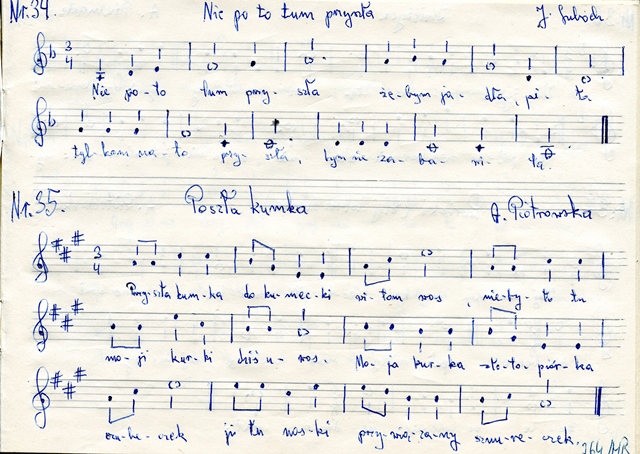 Nr. 34. Nie po to tum przyszła J. Subock
3 4
Nie po-to tum przy-szła że-bym ja-dła, pi-ła
tyl-kom na-to przy-szła, bym sie za-ba-wi-ła.
Nr. 35. Poszła kumka A. Piotrowska
3 4
Przy-szła kum-ka do ku-mec-ki wi-tom wos, nie-by-ło tu
mo-ji kur-ki dziś u-wos. Mo-ja kur-ka zło-to-piór-ka
cu-bo-czek ji tu nos-ki przy-wią-za-ny sznu-re-czek.